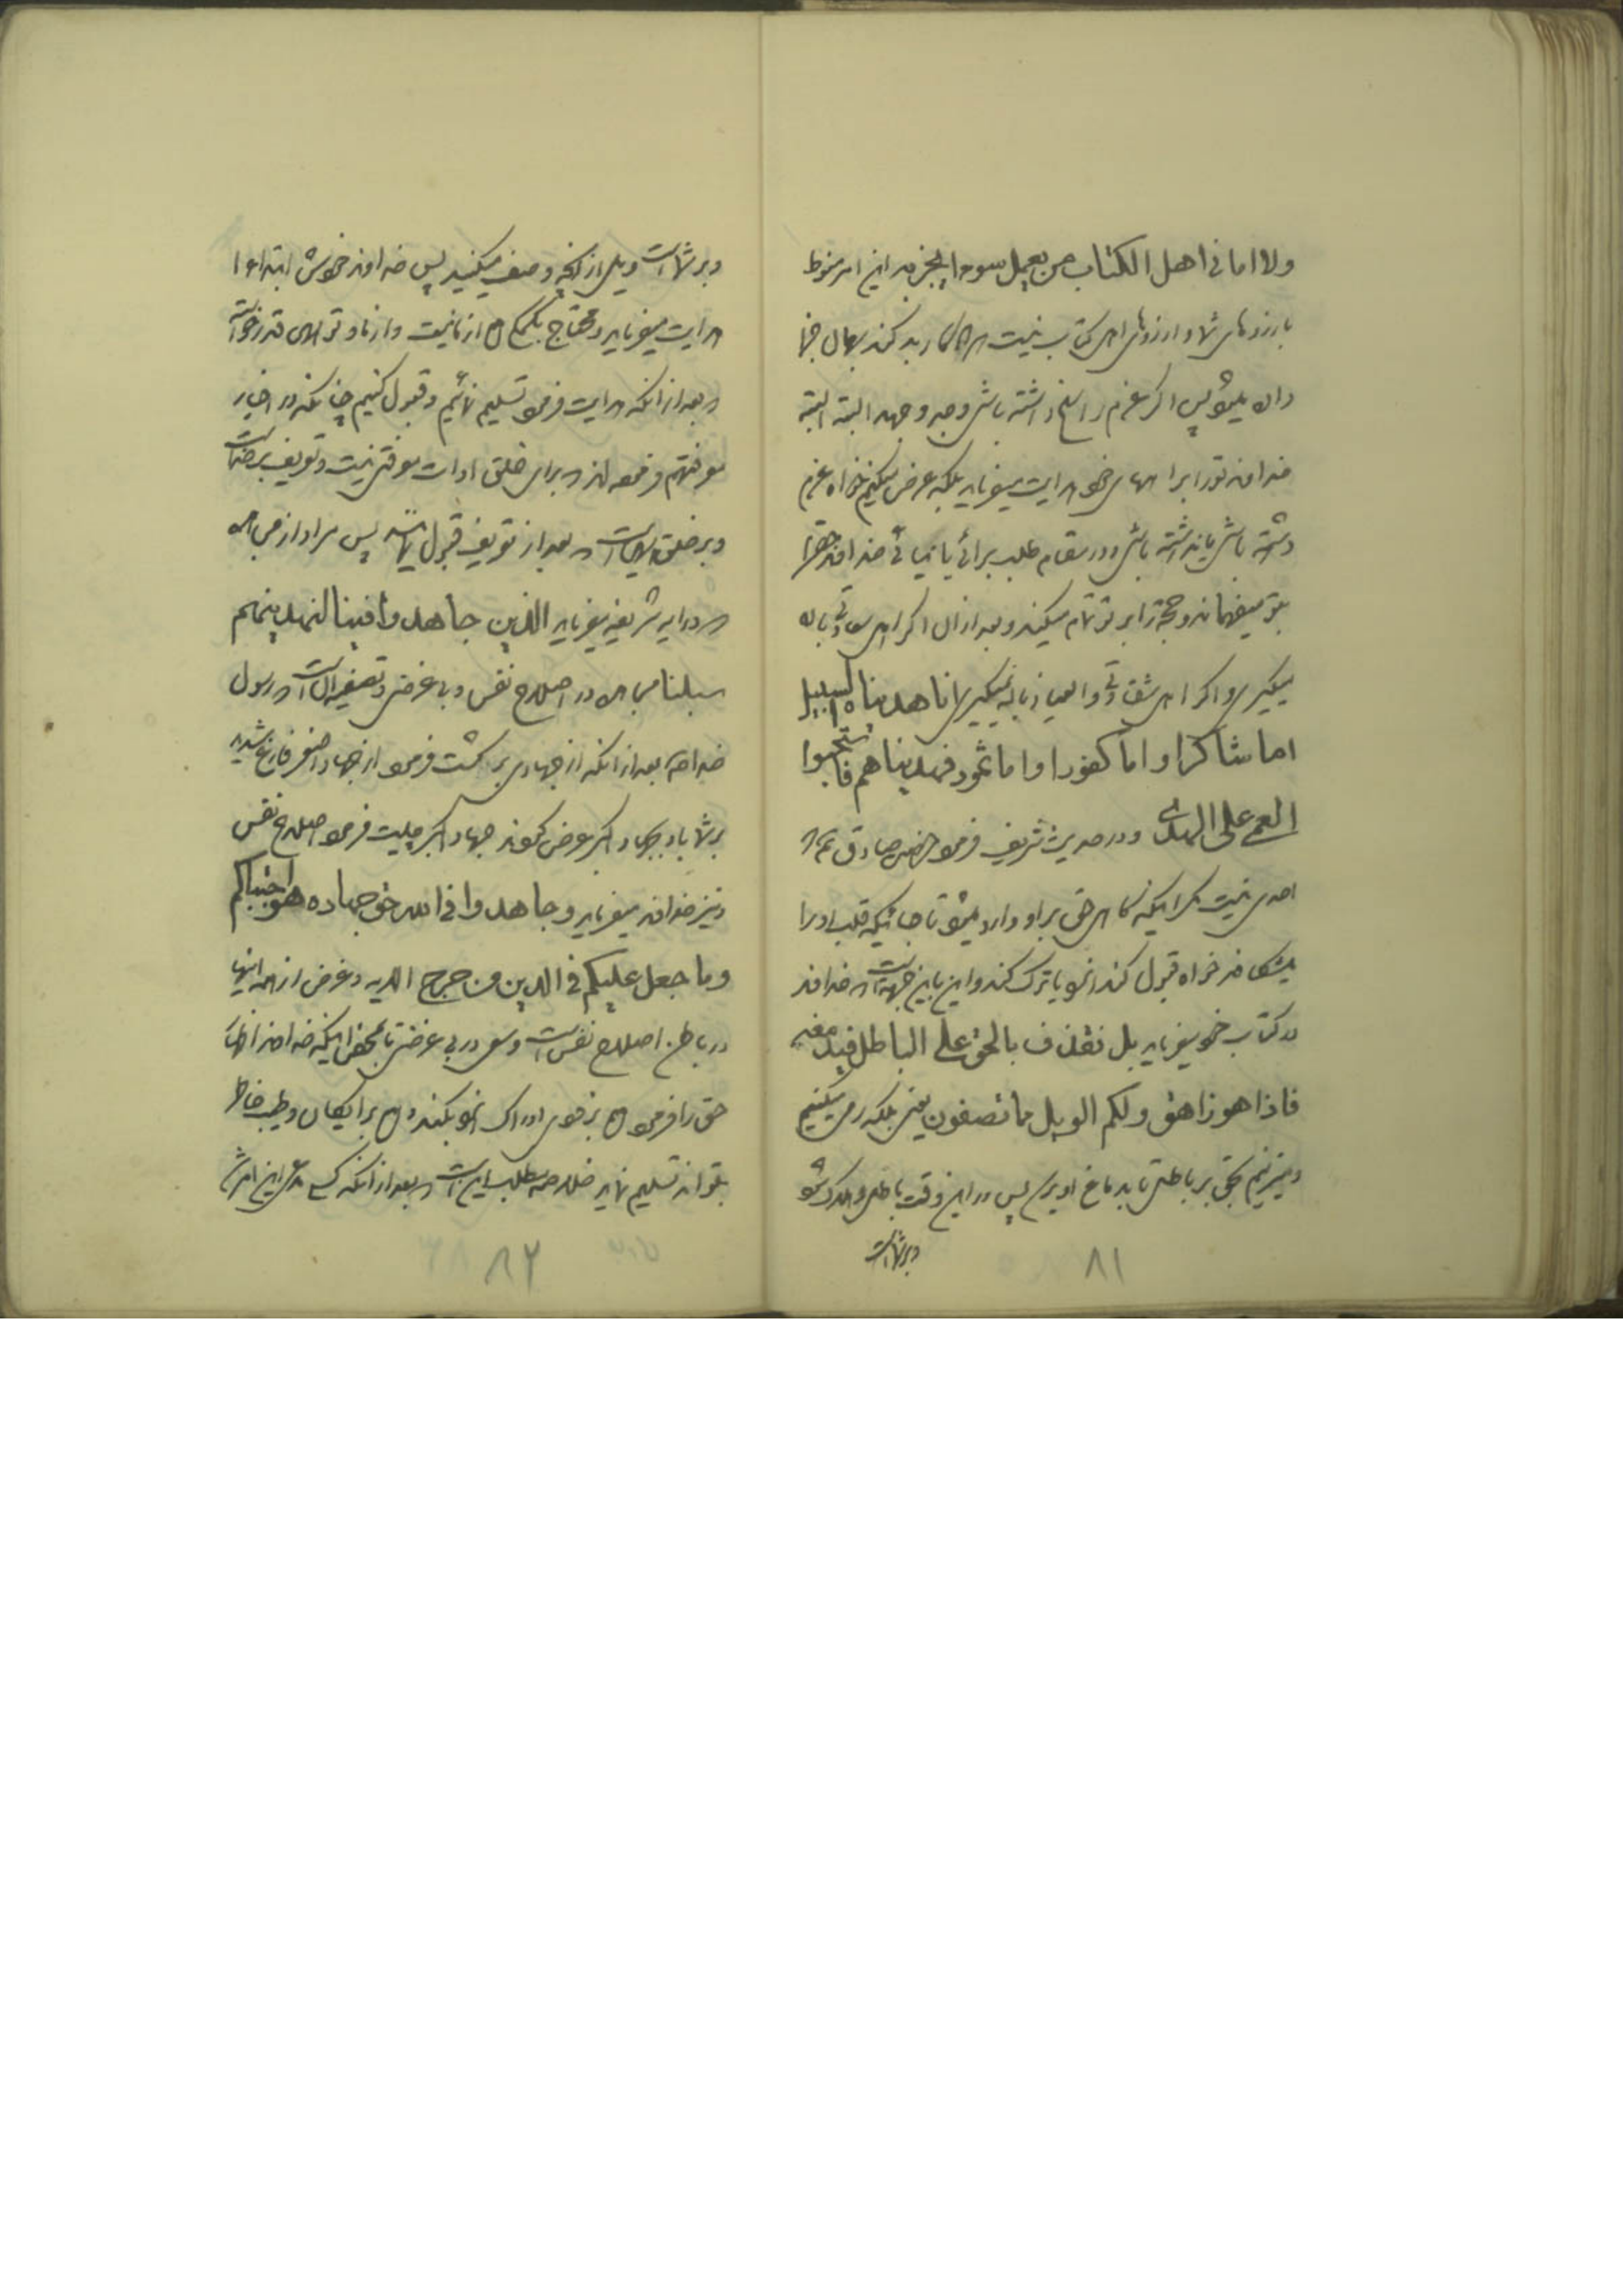 ولا امانی اهل الکتاب من یعمل سوءا یجز به این امر منوط
بارزوهای شما و ارزوهای اهل کتاب نیست هرکس کار بد کند بهمان جزا
داده میشود پس اگر عزم راسخ داشته باشی و جد و جهد البته البته
خداوند تو را براههای خود هدایت میفرماید بلکه عرض میکنم خواه عزم
داشته باشی یا نداشته باشی و در مقام طلب برائی یا نیائی خداوند حق را
بتو میفهماند و حجت را بر تو تمام میکند و بعد از آن اگر اهل سعادتی بالا
میگیری و اگر اهل شقاوتی والعیاذ بالله نمیگیری انا هدیناه السبیل
اما شاکرا و اما کفورا و اما ثمود فهدیناهم فاستحبوا
العمی علی الهدی و در حدیث شریف فرمود حضرت صادق ع که
احدی نیست مگر اینکه حق بر او وارد میشود تا جائیکه قلب او را
میشکافد خواه قبول کند انرا و یا ترک کند و این باین جهت است که خداوند
در کتاب خود میفرماید بل نقذف بالحق علی الباطل فیدمغه
فاذا هو زاهق ولکم الویل مما تصفون یعنی بلکه رمی میکنیم
و میزنیم بحق بر باطل تا بدماغ او برسد پس در این وقت باطل هلاک شود
و بر شماست
۸۱
و بر شماست ویل از آنچه وصف میکنید پس خداوند خودش ابتداءا
هدایت میفرماید و محتاج بکمک از ما نیست و از ما و تو همین قدر خواسته
که بعد از آنکه هدایت فرمود تسلیم نمائیم و قبول کنیم چنانکه در اخبار
معرفتهم فرموده اند که برای خلق ادوات معرفتی نیست و تعریف بر خداست
و بر خلق است که بعد از تعریف قبول نمایند پس مراد از مجاهده
که در آیه شریفه میفرماید الذین جاهدوا فینا لنهدینهم
سبلنا مجاهده در اصلاح نفس و بی غرضی و تصفیه آنست که رسول
خدا ص بعد از آنکه از جهادی برگشت فرمود از جهاد اصغر فارغ شدید
بر شما باد بجهاد اکبر عرض کردند جهاد اکبر چیست فرمود اصلاح نفس
و نیز خداوند میفرماید و جاهدوا فی الله حق جهاده هو اجتباکم
وما جعل علیکم فی الدین من حرج الایه و غرض از همه اینها
در باطن اصلاح نفس است و سعی در بی غرضی تا بمحض اینکه خداوند اظهار
حق را فرمود بزودی ادراک انرا بکند و برایگان و طیب خاطر
بتواند تسلیم نماید خلاصه مطلب این است که بعد از آنکه کسی مدعی این امر شد
۸۲